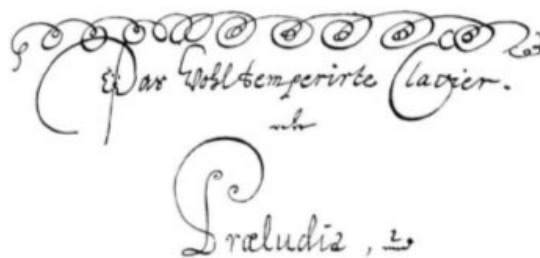 Das Wohltemperirte Clavier.
oder
Præludia,